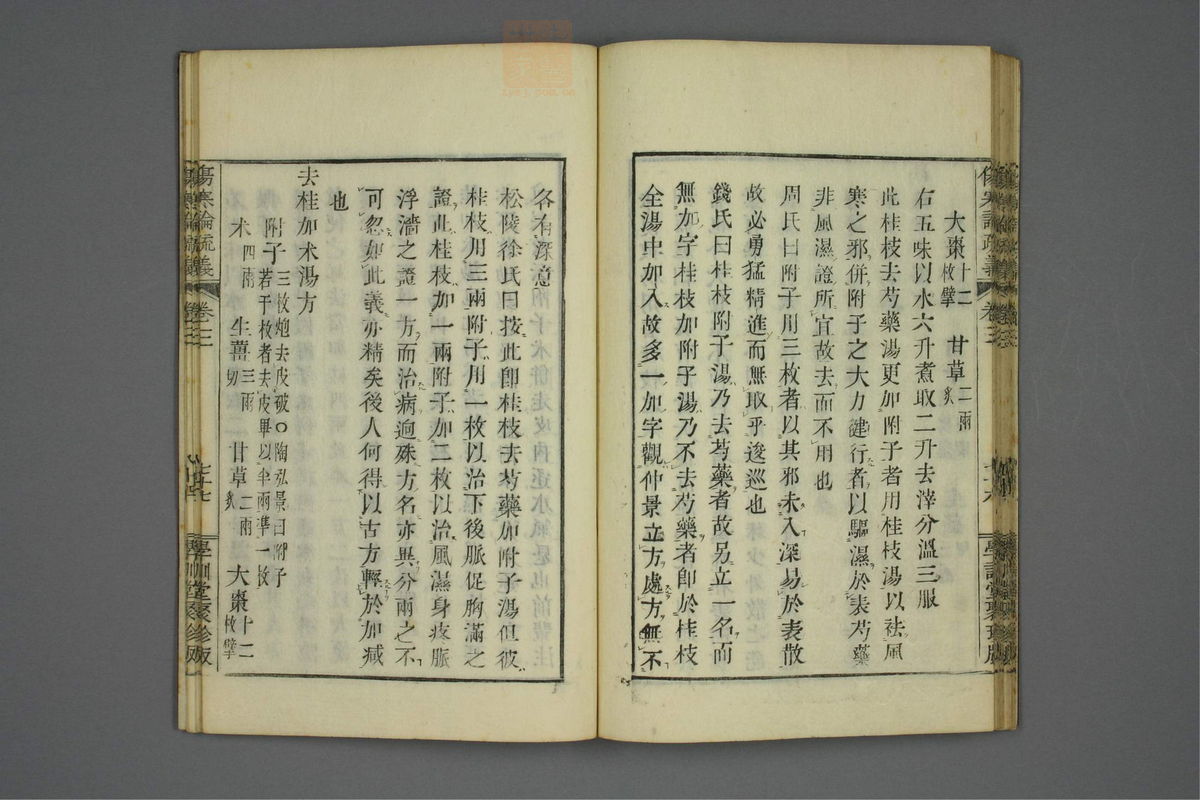 大棗十二枚擘　甘草二兩炙
右五味以水六升煮取二升去滓分溫三服
此桂枝去芍藥湯更加附子者用桂枝湯以祛風
寒之邪併附子之大力健行者以驅濕於表芍藥
非風濕證所宜故去而不用也
周氏曰附子用三枚者以其邪未入深易於表散
故必勇猛精進而無取乎逡巡也
錢氏曰桂枝附子湯乃去芍藥者故另立一名而
無加字桂枝加附子湯乃不去芍藥者即於桂枝
全湯中加入故多一加字觀仲景立方處方無不
各有深意
松陵徐氏曰按此卽桂枝去芍藥加附子湯但彼
桂枝用三兩附子用一枚以治下後脈促胸滿之
證此桂枝加一兩附子加二枚以治風濕身疼脈
浮濇之證一方而治病逈殊方名亦異分兩之不
可忽如此義亦精矣後人何得以古方輕於加減
也
去桂加术湯方
附子三枚炮去皮破○陶弘景曰附子若干枚者去皮畢以半兩準一枚
术四兩　生薑三兩切　甘草二兩炙　大棗十二枚擘
傷寒論疏義
卷三
學訓堂聚珍版